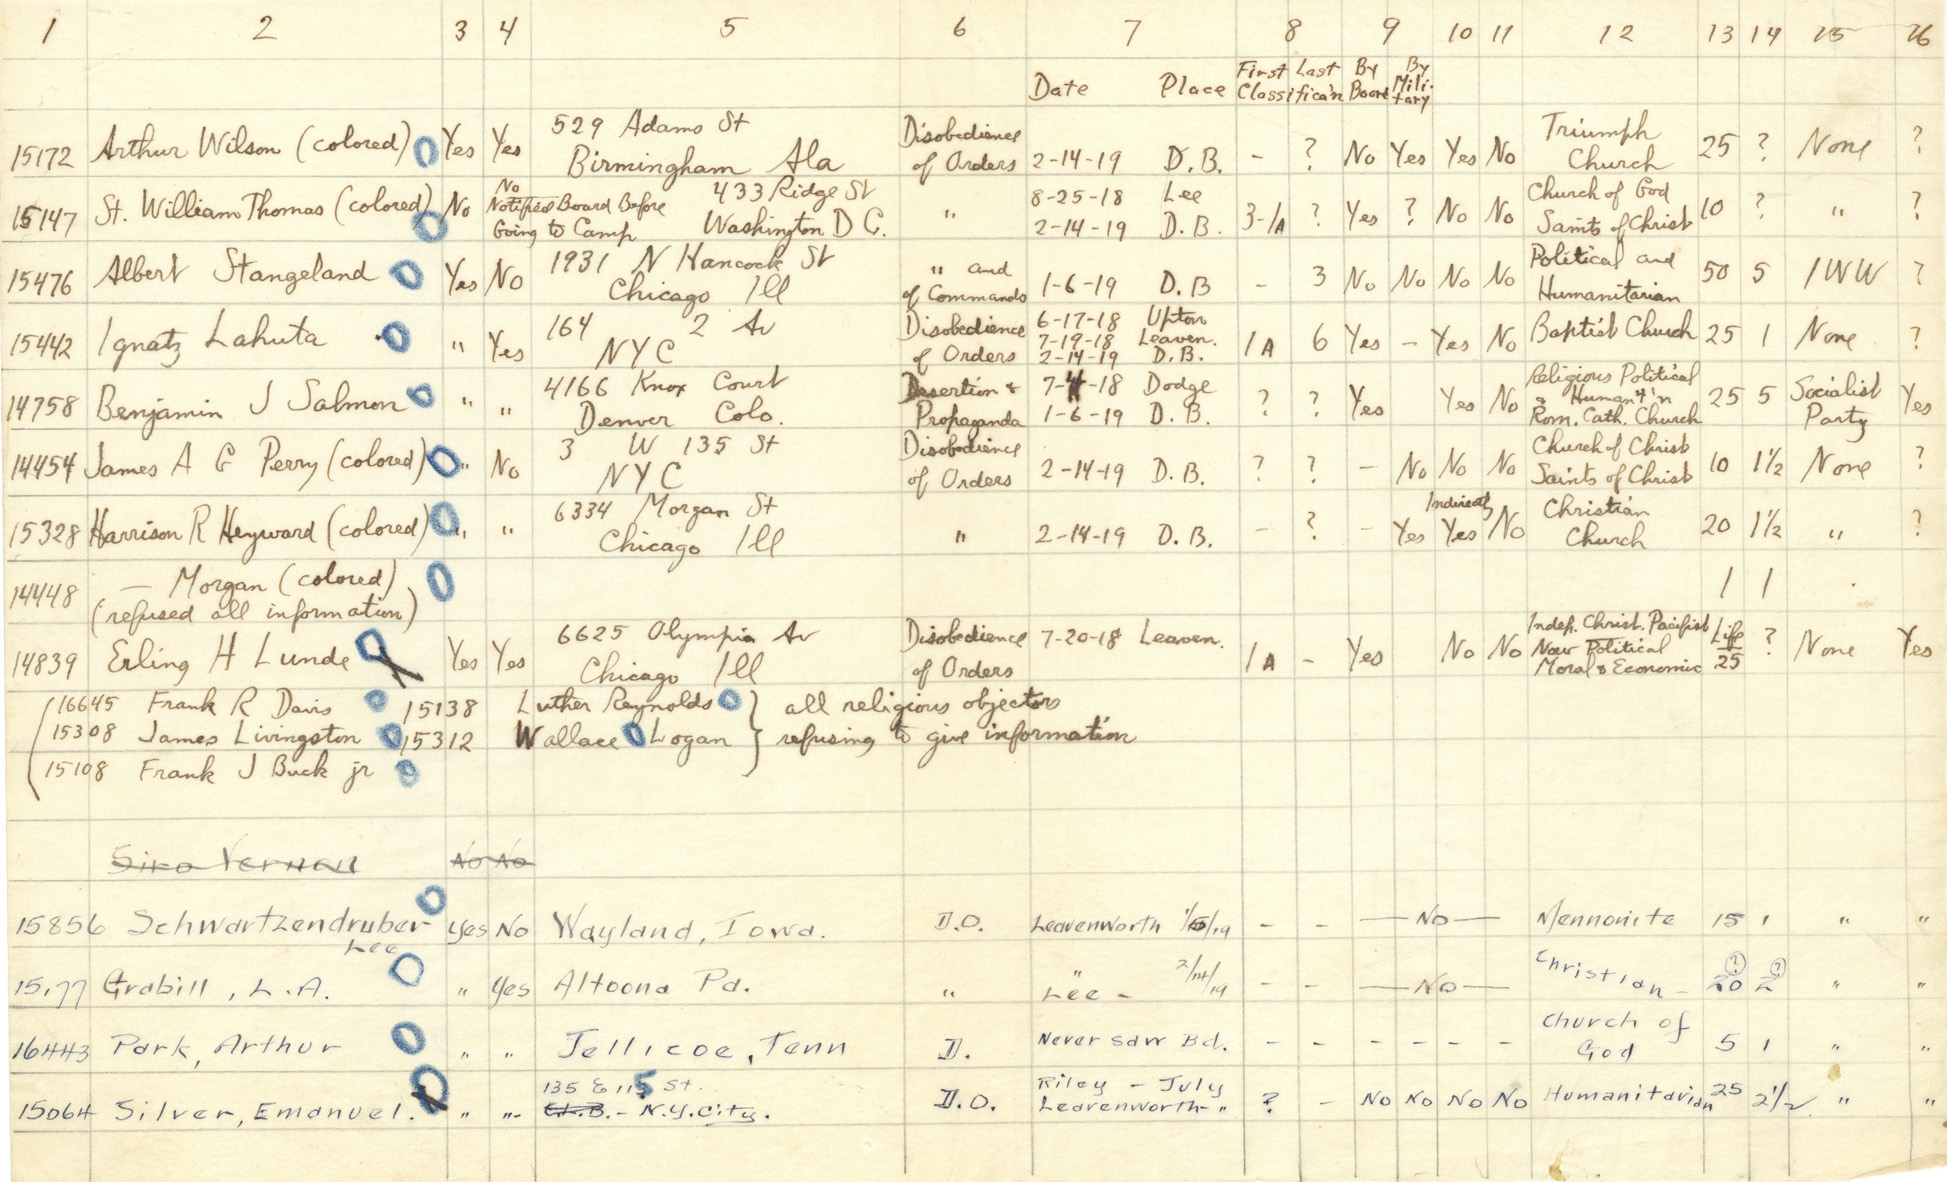 1 2 3 4 5 6 7 8 9 10 11 12 13 14 15 16
Date Place First Classifica'n Last By Board By Mili-tary
15172 Arthur Wilson (colored) Yes Yes 529 Adams St
Birmingham Ala Disobedience of Orders 2-14-19 D.B. - ? No Yes Yes No Triumph Church 25 ? None ?
15147 St. William Thomas (colored) No No Notified Board Before Going to Camp 433 Ridge St
Washington D C. " 8-25-18 Lee
2-14-19 D.B. 3-1A ? Yes ? No No Church of God Saints of Christ 10 ? " ?
15476 Albert Stangeland Yes No 1931 N Hancock St
Chicago Ill " and of Commands 1-6-19 D.B - 3 No No No No Political and Humanitarian 50 5 IWW ?
15442 Ignatz Lahuta " Yes 164 2 Av
NYC Disobedience of Orders 6-17-18 Upton
7-19-18 Leaven.
2-14-19 D.B. 1A 6 Yes - Yes No Baptist Church 25 1 None ?
14758 Benjamin J Salmon " " 4166 Knox Court
Denver Colo. Desertion & Propaganda 7-4-18 Dodge
1-6-19 D.B. ? ? Yes Yes No Religious Political & Human't'n Rom. Cath. Church 25 5 Socialist Party Yes
14454 James A G Perry (colored) " No 3 W 135 St
NYC Disobedience of Orders 2-14-19 D.B. ? ? - No No No Church of Christ Saints of Christ 10 1½ None ?
15328 Harrison R Heyward (colored) " " 6334 Morgan St
Chicago Ill " 2-14-19 D.B. - ? - Yes Indirectly Yes No Christian Church 20 1½ " ?
14448 — Morgan (colored) 1 1
(refused all information)
14839 Erling H Lunde Yes Yes 6625 Olympia Av
Chicago Ill Disobedience of Orders 7-20-18 Leaven. 1A - Yes No No Indep. Christ. Pacifist Now Political Moral & Economic Life 25 ? None Yes
16645 Frank R Davis 15138 Luther Reynolds } all religious objectors
15308 James Livingston 15312 Wallace Logan } refusing to give information
15108 Frank J Buck jr
Siro Vernon No No
15856 Schwartzendruber Lee Yes No Wayland, Iowa. D.O. Leavenworth - - — No — Mennonite 15 1 " "
15177 Grabill, L.A. " Yes Altoona Pa. " " Lee - 2/14/19 - - — No — Christian - 20 (?) 2 (?) " "
16443 Park, Arthur " " Jellicoe, Tenn D. Never saw Bd. - - - - - - Church of God 5 1 " "
15064 Silver, Emanuel. " " 135 E 115 St.
N.Y. City. D.O. Riley - July
Leavenworth - " ? - No No No No Humanitarian 25 2½ " "